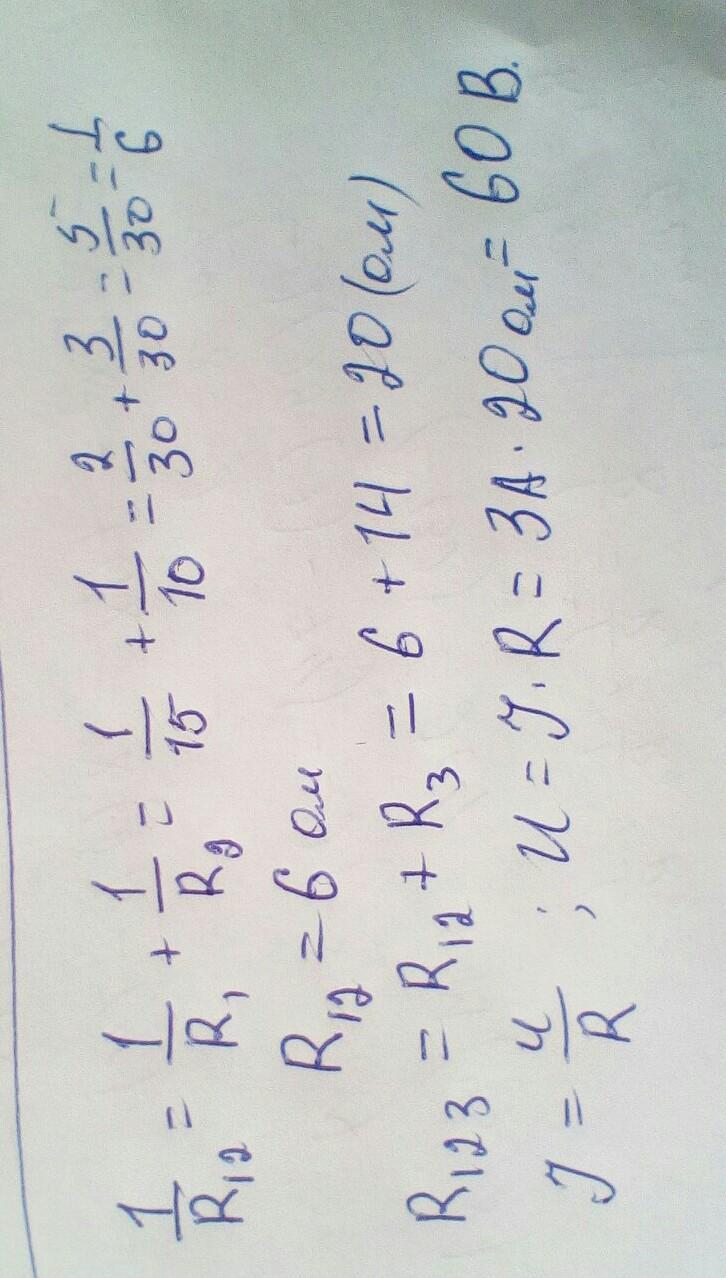 1/R₁₂ = 1/R₁ + 1/R₂ = 1/15 + 1/10 = 2/30 + 3/30 = 5/30 = 1/6
R₁₂ = 6 ом
R₁₂₃ = R₁₂ + R₃ = 6 + 14 = 20 (ом)
J = U/R ; U = J · R = 3А · 20 ом = 60 В.